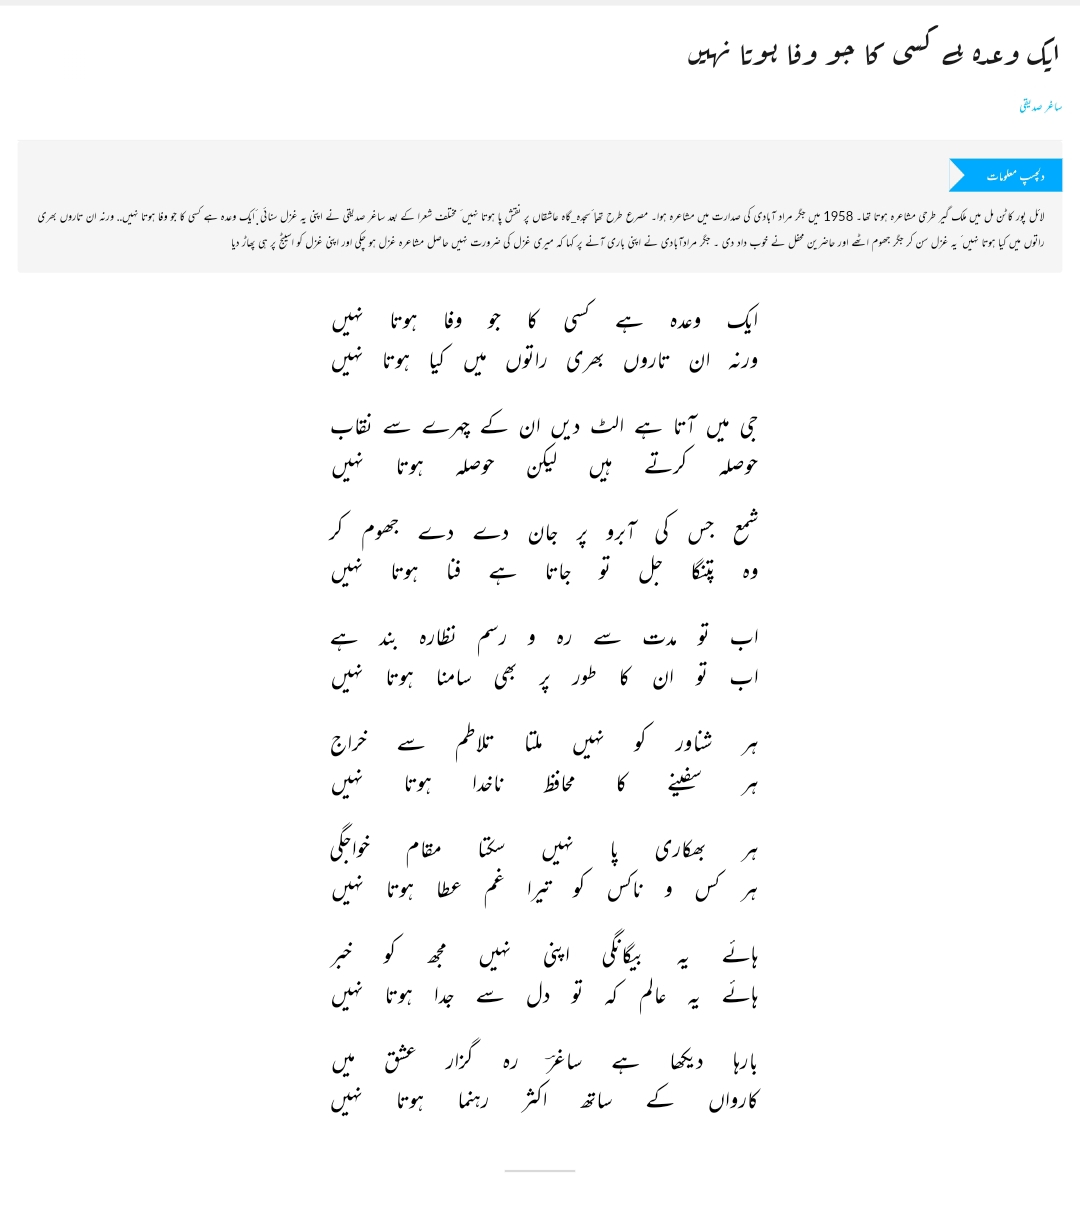 ایک وعدہ ہے کسی کا جو وفا ہوتا نہیں
ساغر صدیقی
دلچسپ معلومات
لائل پور کاٹن مل میں ملک گیر طرحی مشاعرہ ہوتا تھا۔ 1958 میں جگر مراد آبادی کی صدارت میں مشاعرہ ہوا۔ مصرع طرح تھا سجدہ_گاہ عاشقاں پر نقش پا ہوتا نہیں ٗ مختلف شعرا کے بعد ساغر صدیقی نے اپنی یہ غزل سنائی ٖایک وعدہ ہے کسی کا جو وفا ہوتا نہیں.. ورنہ ان تاروں بھری
راتوں میں کیا ہوتا نہیں ٗ یہ غزل سن کر جگر جھوم اٹھے اور حاضرین محفل نے خوب داد دی ۔ جگر مرادآبادی نے اپنی باری آنے پر کہا کہ میری غزل کی ضرورت نہیں حاصل مشاعرہ غزل ہو چکی اور اپنی غزل کو اسٹیج پر ہی پھاڑ دیا
ایک وعدہ ہے کسی کا جو وفا ہوتا نہیں
ورنہ ان تاروں بھری راتوں میں کیا ہوتا نہیں
جی میں آتا ہے الٹ دیں ان کے چہرے سے نقاب
حوصلہ کرتے ہیں لیکن حوصلہ ہوتا نہیں
شمع جس کی آبرو پر جان دے دے جھوم کر
وہ پتنگا جل تو جاتا ہے فنا ہوتا نہیں
اب تو مدت سے رہ و رسم نظارہ بند ہے
اب تو ان کا طور پر بھی سامنا ہوتا نہیں
ہر شناور کو نہیں ملتا تلاطم سے خراج
ہر سفینے کا محافظ ناخدا ہوتا نہیں
ہر بھکاری پا نہیں سکتا مقام خواجگی
ہر کس و ناکس کو تیرا غم عطا ہوتا نہیں
ہائے یہ بیگانگی اپنی نہیں مجھ کو خبر
ہائے یہ عالم کہ تو دل سے جدا ہوتا نہیں
بارہا دیکھا ہے ساغرؔ رہ گزار عشق میں
کارواں کے ساتھ اکثر رہنما ہوتا نہیں